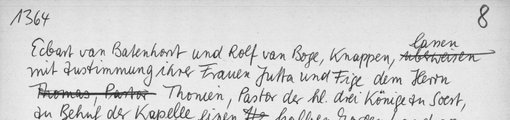 1364 8
lassen
Eckart van Batenhorst und Rolf van Boge, Knappen, überweisen
mit Zustimmung ihrer Frauen Jutta und Fige dem Herrn
Thomas, Pastor Thonien, Pastor der hl. drei Könige zu Soest,
zu Behuf der Kapelle einen halben